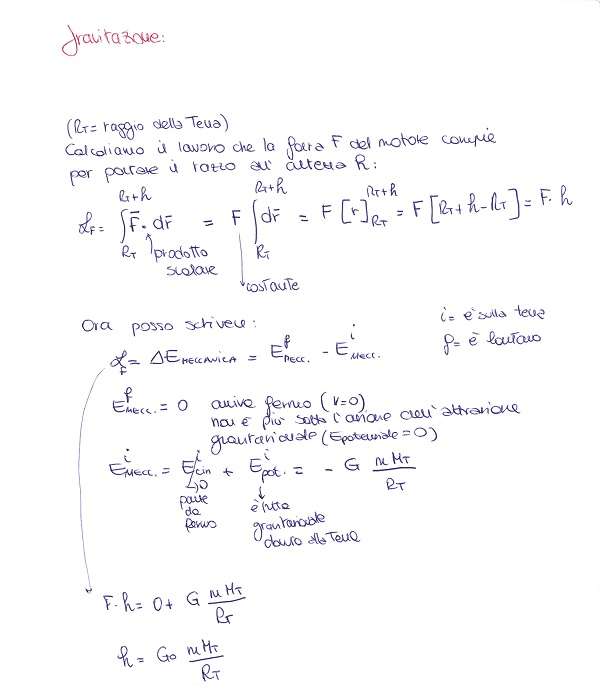 Gravitazione:
(R_T = raggio della Terra)
Calcoliamo il lavoro che la forza F del motore compie
per portare il razzo all'altezza h:
L_F = ∫_{R_T}^{R_T+h} F̄ · dr̄ = F ∫_{R_T}^{R_T+h} dr̄ = F [r]_{R_T}^{R_T+h} = F [R_T + h - R_T] = F · h
prodotto scalare
costante
Ora posso scrivere:
i = è sulla terra
f = è lontano
L_F = ΔE_MECCANICA = E^f_MECC. - E^i_MECC.
E^f_MECC. = 0 arriva fermo (v=0)
non è più sotto l'azione dell'attrazione
gravitazionale (E potenziale = 0)
E^i_MECC. = E^i_cin + E^i_pot. = - G mM_T / R_T
→0
parte da fermo
è tutta gravitazionale dovuta alla Terra
F · h = 0 + G mM_T / R_T
h = G mM_T / R_T